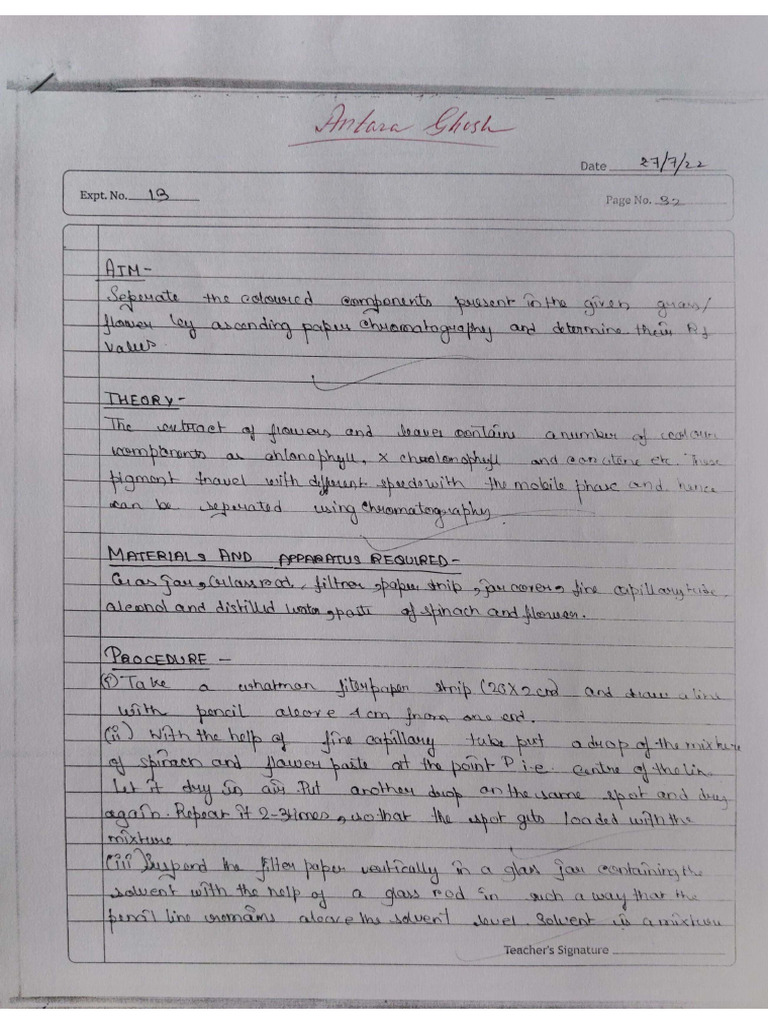 Antara Ghosh
Date 27/7/22
Expt. No. 13
Page No. 32
AIM-
Seperate the coloured components present in the given grass/
flower by ascending paper chromatography and determine their Rf
values.
THEORY-
The extract of flowers and leaves contains a number of colour
components as chlorophyll, x and etc. These
pigment travel with different speeds with the mobile phase and hence
can be seperated using chromatography.
MATERIALS AND APPARATUS REQUIRED-
Gas jar, Glass rod, filtner, paper strip, jar cover, fine capillary tube,
alcohol and distilled water, paste of spinach and flower.
PROCEDURE -
(i) Take a whatman filter paper strip (20x2 cm) and draw a line
with pencil above 4cm from one end.
(ii) With the help of fine capillary tube put a drop of the mixture
of spinach and flower paste at the point P i.e. centre of the line
Let it dry in air. Put another drop on the same spot and dry
again. Repeat it 2-3times, so that the spot gets loaded with the
mixture
(iii) Suspend the filter paper vertically in a glass jar containing the
solvent with the help of a glass rod in such a way that the
pencil line remains above the solvent level. Solvent is a mixture
Teacher's Signature